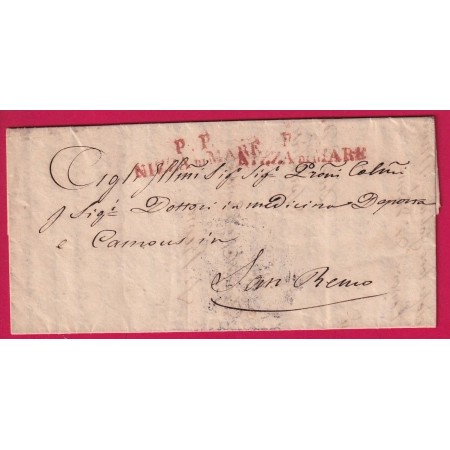 P. P. P.
NIZZA DI MARE NIZZA DI MARE
Agl' Illmi Sig. Sigi Proni Colmi
Sigi Dottori in medicina Deporra
e Camous in
San Remo